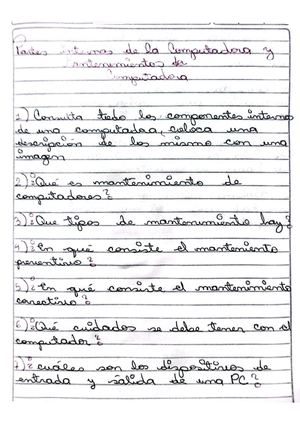 Partes internas de la Computadora y
mantenimientos de
Computadora
1) Consulta todo los componentes interno
de una computadora, coloca una
descripción de los mismo con una
imagen
2) ¿Qué es mantenimiento de
computadores?
3) ¿Que tipos de mantenimiento hay?
4) ¿En qué consiste el manteniento
preventivo?
5) ¿En qué consiste el mantenimiento
correctivo?
6) ¿Qué cuidados se debe tener con el
computador?
7) ¿cuáles son los dispositivos de
entrada y salida de una PC?